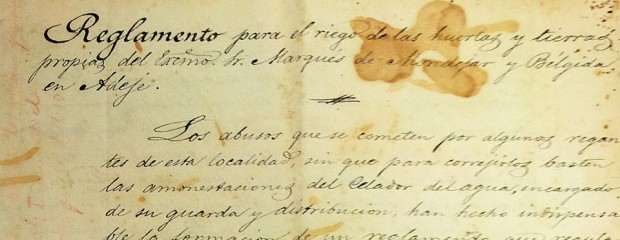 Reglamento para el riego de las huertas y tierras
propias del Excmo. Sr. Marqués de Mondejar y Bélgida
en Adeje.
Los abusos que se cometen por algunos regan-
tes de esta localidad, sin que para correjirlos basten
las amonestaciones del Celador del agua, encargado
de su guarda y distribucion, han hecho indispensa-
ble la formacion de un reglamento que regula